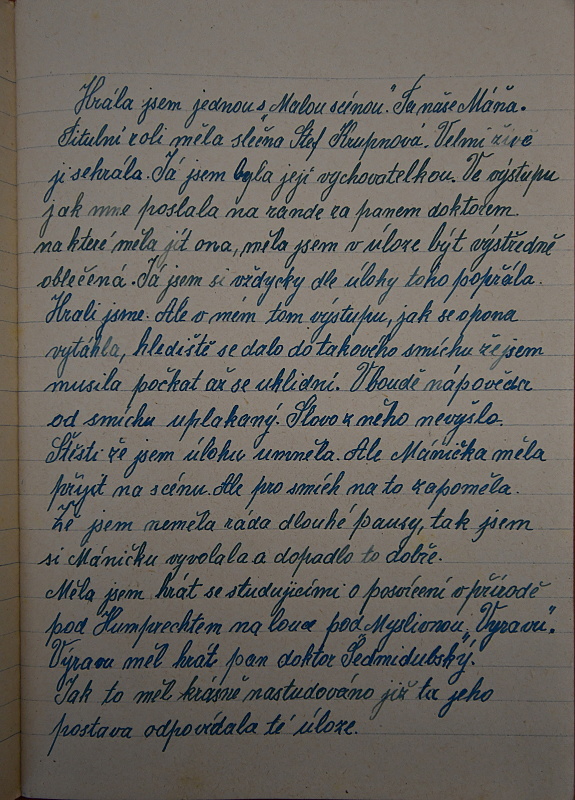 Hrála jsem jednou s „Malou scénou." Ta naše Máňa.
Titulní roli měla slečna Štef Krupnová. Velmi živě
ji sehrála. Já jsem byla její vychovatelkou. Ve výstupu
jak mne poslala na rande za panem doktorem
na které měla jít ona, měla jsem v úloze být výstředně
oblečená. Já jsem si vždycky dle úlohy toho popřála.
Hráli jsme. Ale v mém tom výstupu, jak se opona
vytáhla, hlediště se dalo do takového smíchu že jsem
musila počkat až se uklidní. V boudě nápověda
od smíchu uplakaný. Slovo z něho nevyšlo.
Štěstí že jsem úlohu umněla. Ale Mánička měla
přijst na scénu. Ale pro smích na to zapoměla.
Že jsem neměla ráda dlouhé pausy, tak jsem
si Máničku vyvolala a dopadlo to dobře.
Měla jsem hrát se studujícími o posvícení v přírodě
pod Humprechtem na louce pod „Myslivnou" „Vyravu".
Výravu měl hrát pan doktor „Sedmidubský".
Jak to měl krásně nastudováno již ta jeho
postava odpovídala té úloze.